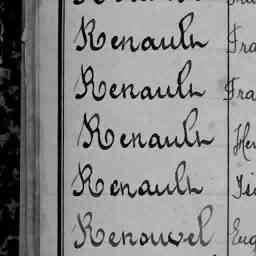 Renault Fra
Renault Fra
Renault Her
Renault
Renouvel Eug